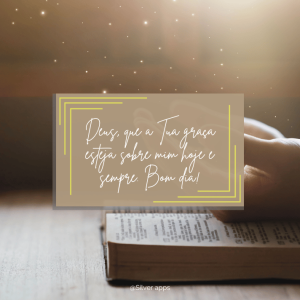 Deus, que a Tua graça
esteja sobre mim hoje e
sempre. Bom dia!
@Silver apps